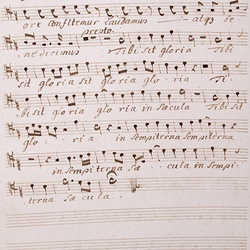 ore Confitemur Laudamus atq be
presto.
nedicimus Tibi sit gloria Tibi
sit gloria sit gloria gloria Ti
bi sit gloria gloria in sæcula tibi sit
glo ria in sempiterna sempiterna
in sempiterna sæ cula in sempi
terna sæcula.